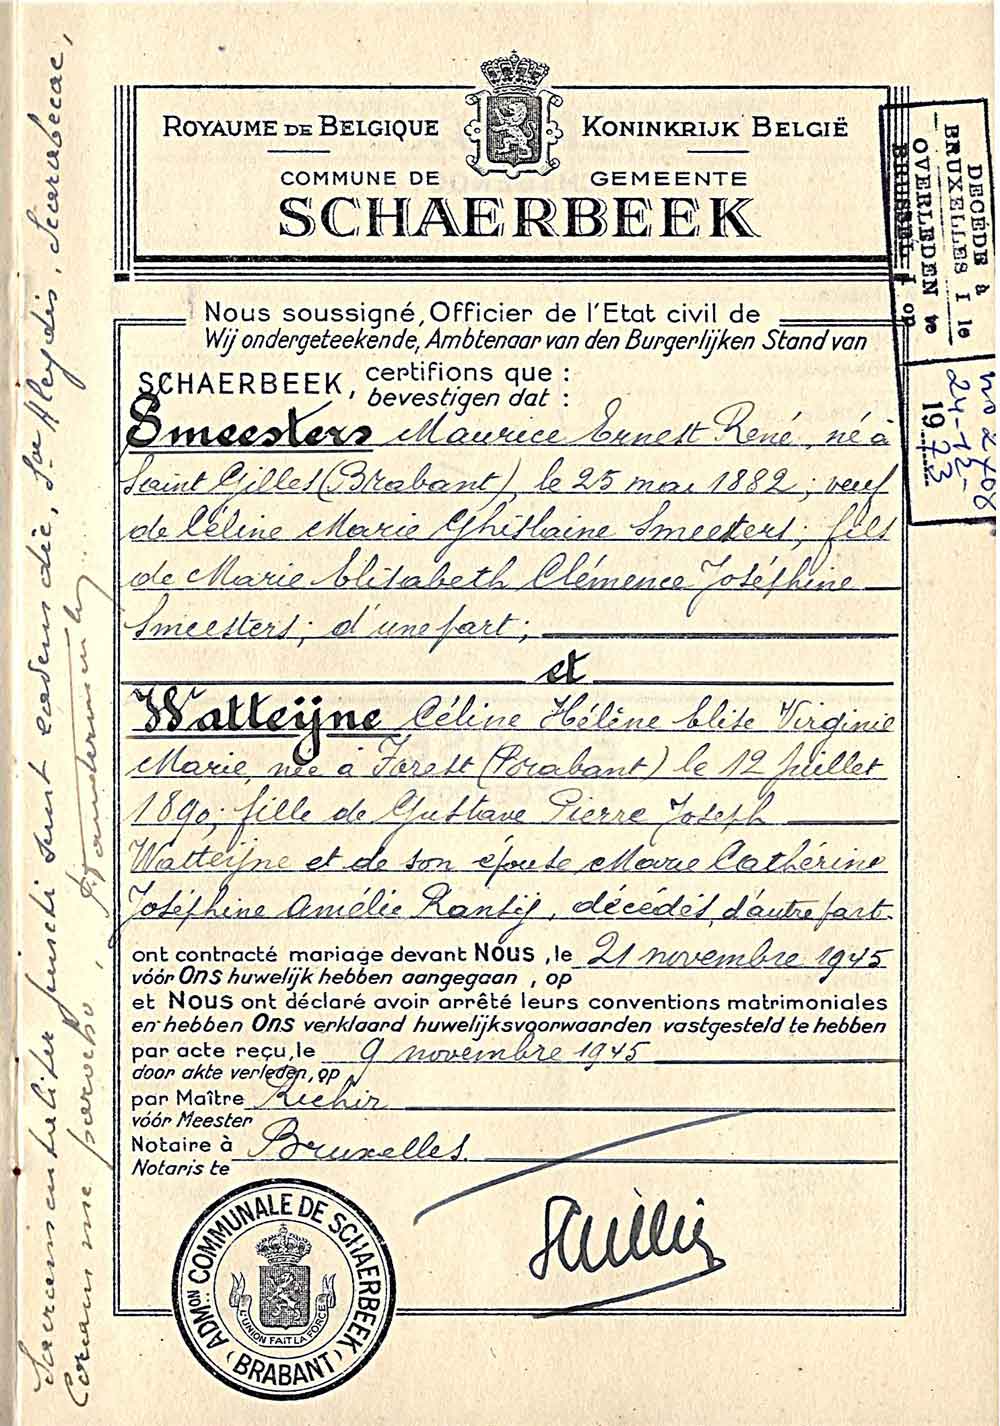 ROYAUME DE BELGIQUE KONINKRIJK BELGIË
COMMUNE DE GEMEENTE
SCHAERBEEK
DECÉDÉ à
BRUXELLES I le
OVERLEDEN te
BRUSSEL I op
no 2708
24-12-
1973
Nous soussigné, Officier de l'Etat civil de
Wij ondergeteekende, Ambtenaar van den Burgerlijken Stand van
SCHAERBEEK, certifions que :
bevestigen dat :
Smeesters Maurice Ernest René, né à
Saint Gilles (Brabant), le 25 mai 1882; veuf
de Céline Marie Ghislaine Smeesters; fils
de Marie Elisabeth Clémence Joséphine
Smeesters; d'une part;
et
Watteijne Céline Hélène Elise Virginie
Marie, née à Forest (Brabant) le 12 juillet
1890; fille de Gustave Pierre Joseph
Watteijne et de son épouse Marie Cathérine
Joséphine Amélie Ransij, décédés, d'autre part.
ont contracté mariage devant NOUS, le 21 novembre 1945
vóór Ons huwelijk hebben aangegaan, op
et NOUS ont déclaré avoir arrêté leurs conventions matrimoniales
en hebben Ons verklaard huwelijksvoorwaarden vastgesteld te hebben
par acte reçu, le 9 novembre 1945
door akte verleden, op
par Maître Richir
vóór Meester
Notaire à Bruxelles.
Notaris te
ADMON COMMUNALE DE SCHAERBEEK
(BRABANT)
L'UNION FAIT LA FORCE
Sacramentaliter juncti sunt eadem die, Sa Aleydis, Scarabecae,
Coram me parocho,